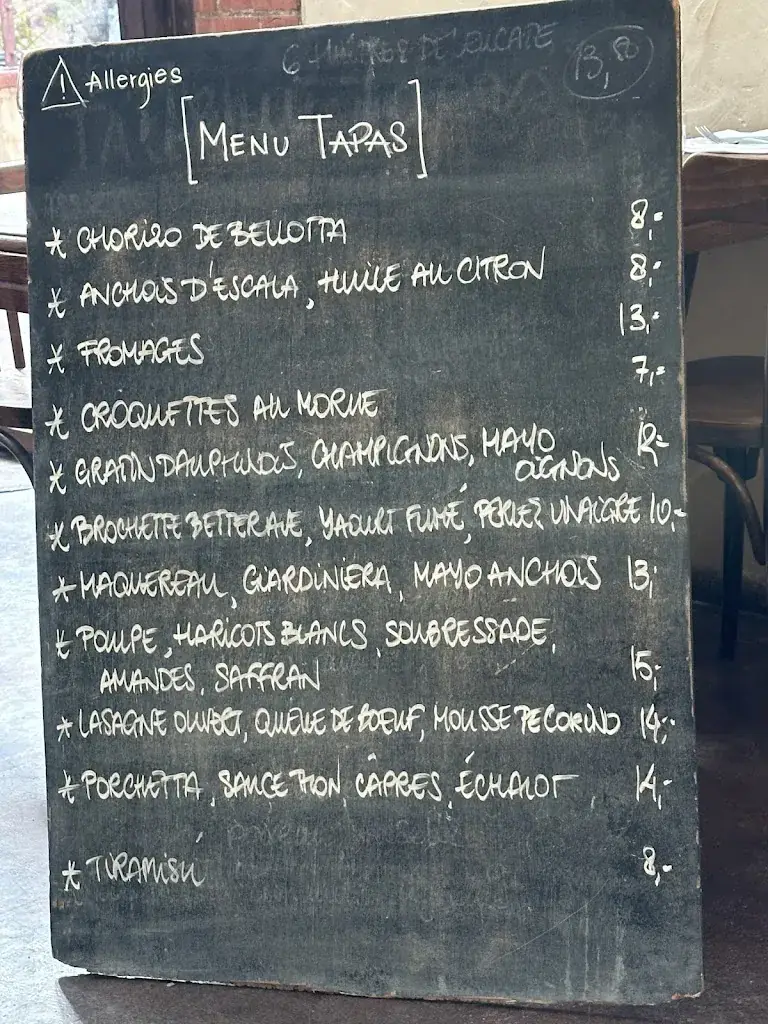 6 HUÎTRES DE LEUCATE 13,50
⚠ Allergies
[MENU TAPAS]
* CHORIZO DE BELLOTTA 8,-
* ANCHOIS D'ESCALA, HUILE AU CITRON 8,-
* FROMAGES 13,-
* CROQUETTES AU MORUE 7,-
* GRATIN DAUPHINOIS, CHAMPIGNONS, MAYO 12,-
OIGNONS
* BROCHETTE BETTERAVE, YAOURT FUMÉ, PERLES VINAIGRE 10,-
* MAQUEREAU, GIARDINIERA, MAYO ANCHOIS 13,-
* POULPE, HARICOTS BLANCS, SOUBRESSADE,
AMANDES, SAFFRAN 15,-
* LASAGNE OUVERT, QUEUE DE BOEUF, MOUSSE PECORINO 14,-
* PORCHETTA, SAUCE THON, CÂPRES, ÉCHALOT 14,-
* TIRAMISÚ 8,-